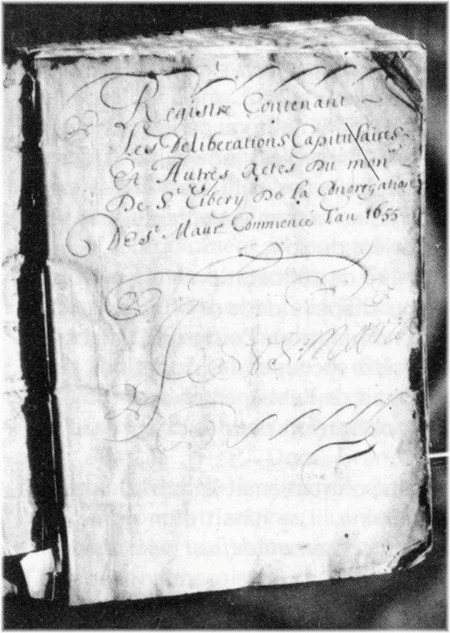 Registre Contenant
Les Deliberations Capitulaires
Et Autres Actes Du mon.
De St. Tibery De La Congregation
De St. Maur Commencé Lan 1655